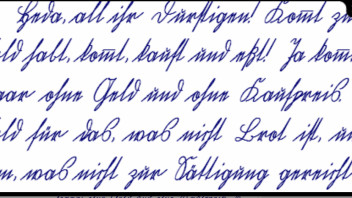 Heda, all ihr Durstigen! Kom̄t zu
ld habt, kom̄t, kauft und eßt! Ja kom̄
ohne Geld und ohne Kaufpreis.
ld für das, was nicht Brot ist, u
n, was nicht zur Sättigung gereicht